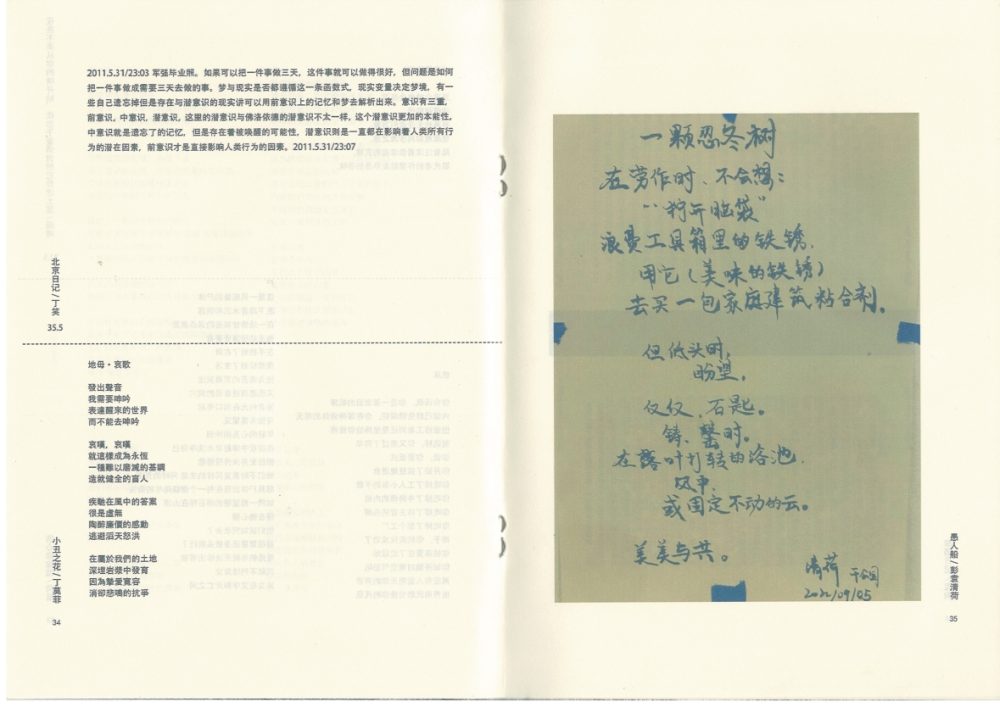 2011.5.31/23:03 军强毕业照。如果可以把一件事做三天，这件事就可以做得很好，但问题是如何
把一件事做成需要三天去做的事。梦与现实是否都遵循这一条函数式，现实变量决定梦境，有一
些自己遗忘掉但是存在与潜意识的现实讲可以用前意识上的记忆和梦去解析出来。意识有三重，
前意识，中意识，潜意识，这里的潜意识与佛洛依德的潜意识不太一样，这个潜意识更加的本能性，
中意识就是遗忘了的记忆，但是存在着被唤醒的可能性，潜意识则是一直都在影响着人类所有行
为的潜在因素，前意识才是直接影响人类行为的因素。2011.5.31/23:07
北京日记/丁笑
35.5
地母·哀歌
發出聲音
我需要呻吟
表達醒來的世界
而不能去呻吟
哀嘆，哀嘆
就這樣成為永恆
一種難以磨滅的基調
造就健全的盲人
疾馳在風中的答案
很是虛無
陶醉廉價的感動
逃避滔天怒洪
在屬於我們的土地
深埋岩漿中發育
因為摯愛寬容
消卻悲鳴的抗爭
小丑之花/丁莫菲
34
一颗忍冬树
在劳作时、不会想：
浪费工具箱里的铁锈.
用它（美味的铁锈）
去买一包家庭建筑粘合剂。
但低头时,
盼望,
仅仅，石匙。
铸、鑿时。
在落叶打转的浴池.
风中,
或固定不动的云。
美美与共。
清荷
2022/09/05
愚人船/彭袁清荷
35